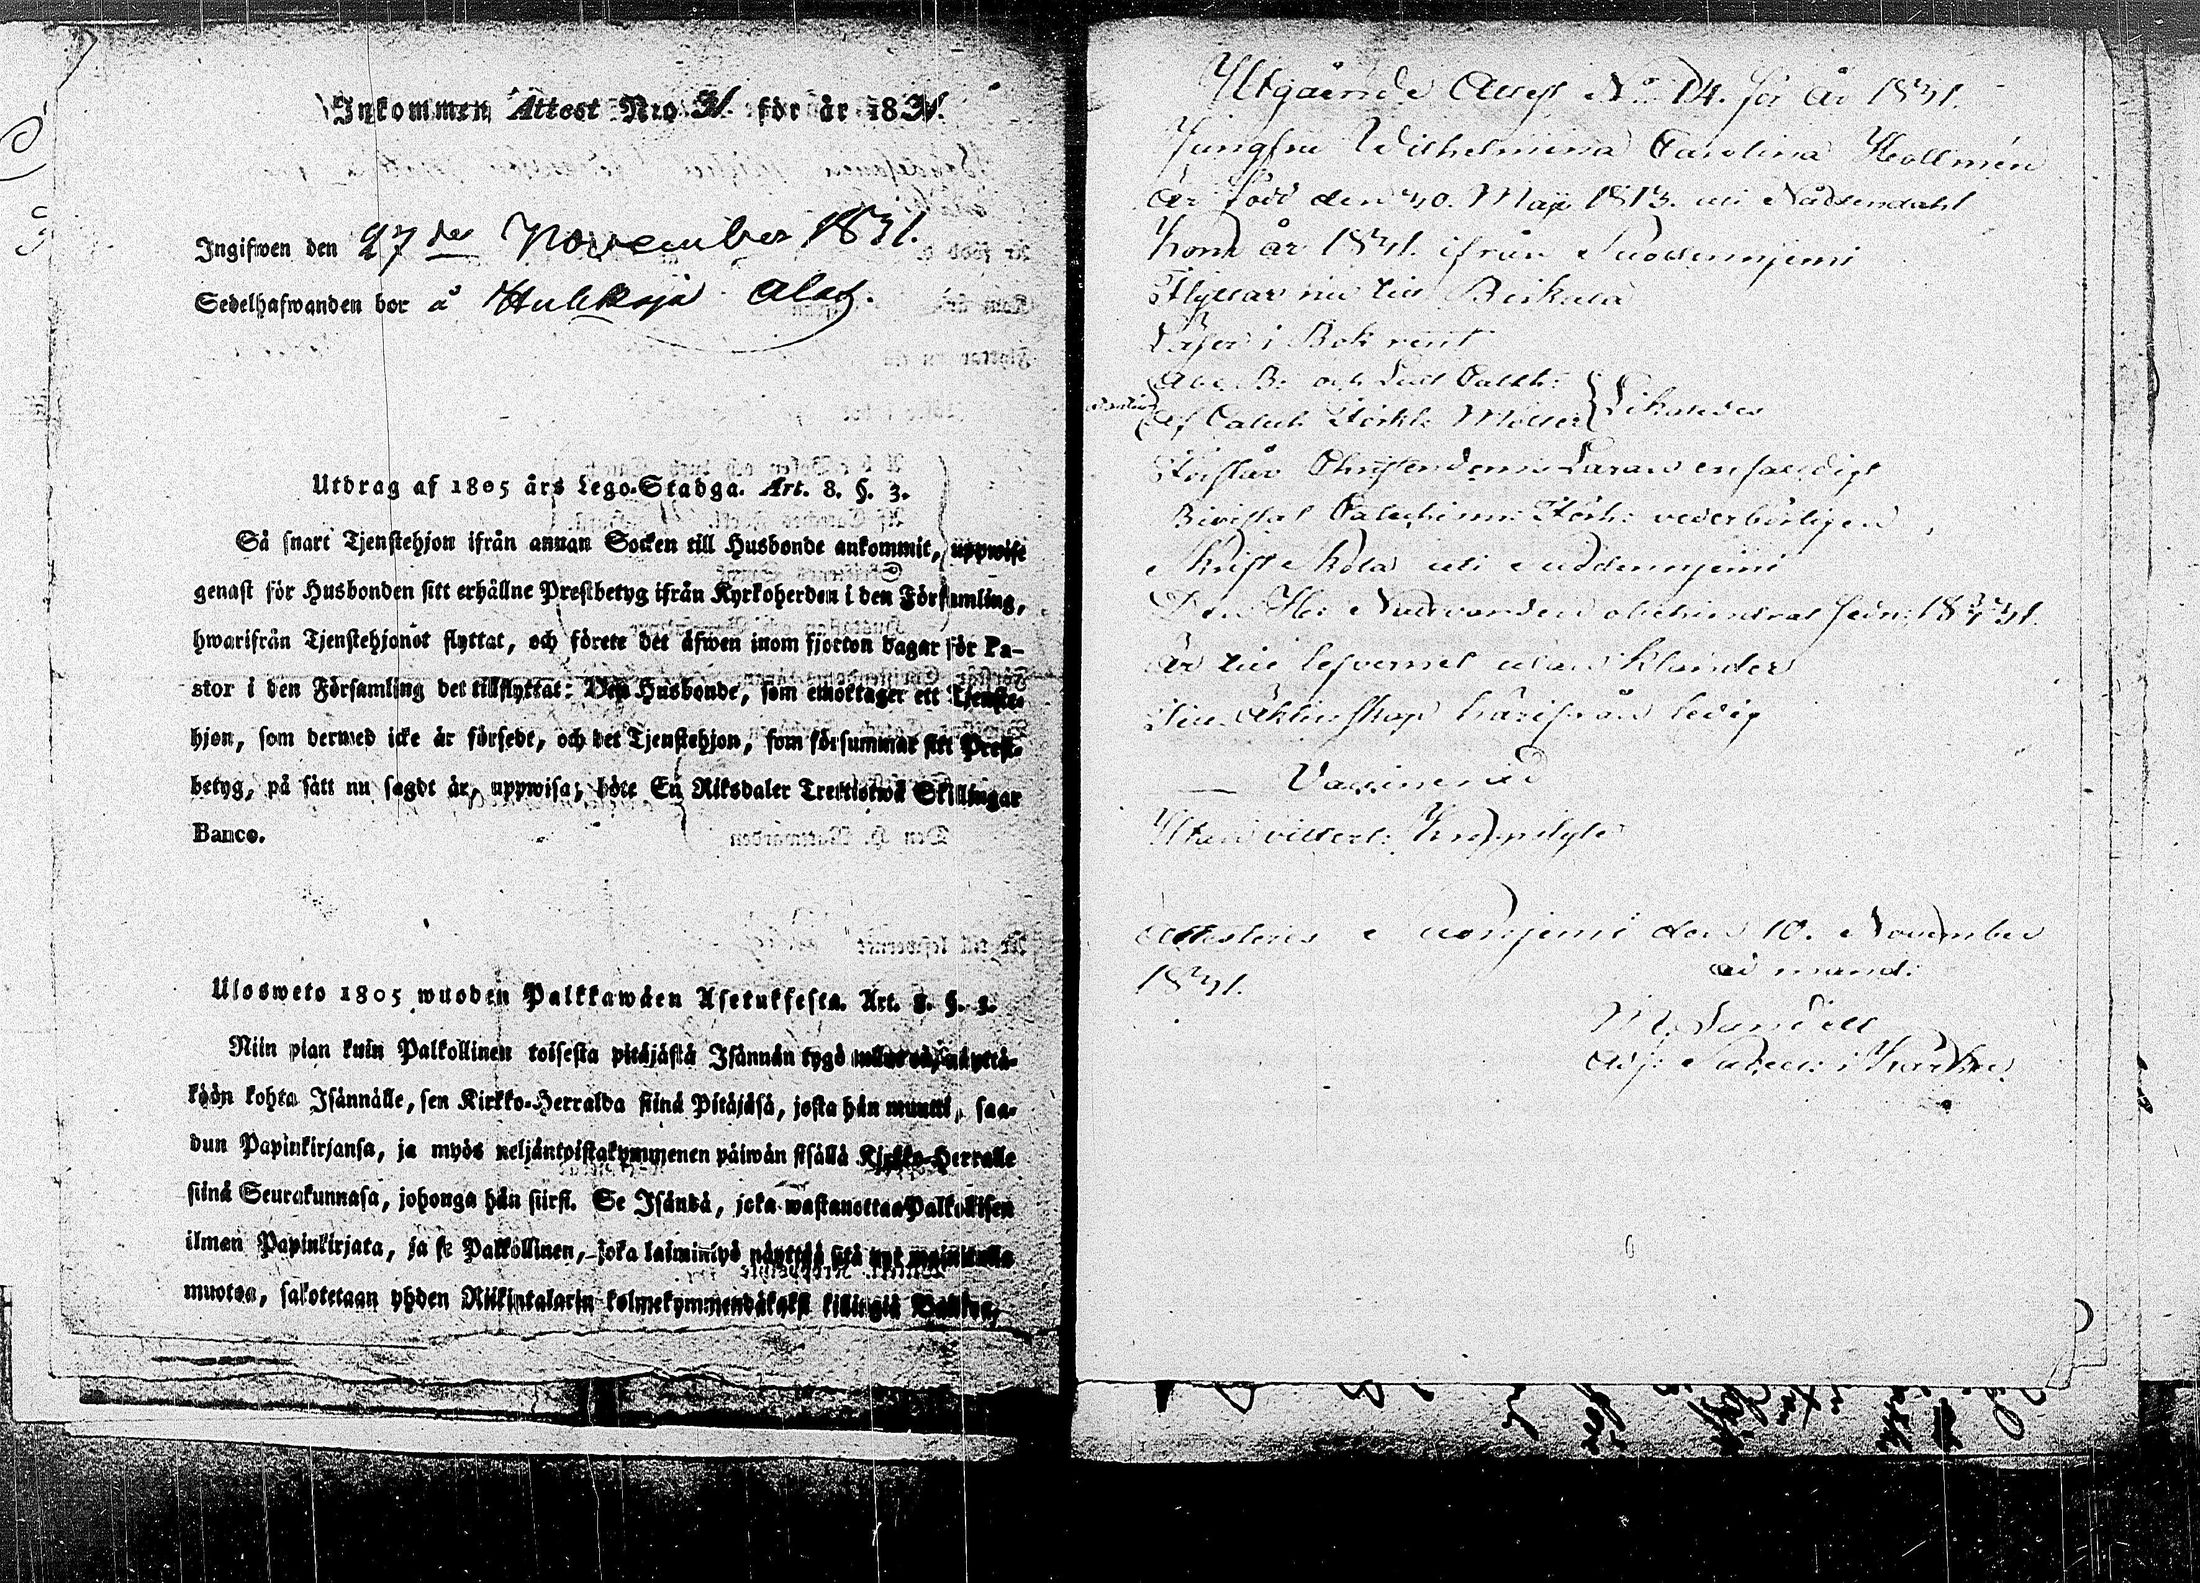 Inkommen Attest Nro 31. för år 1831.
Ingifwen den 27de November 1831.
Sedelhafwanden bor å
Utdrag af 1805 års Lego-Stadga. Art. 8. §. 3.
Så snart Tjenstehjon ifrån annan Socken till Husbonde ankommit, uppwise
genast för Husbonden sitt erhållne Prestbetyg ifrån Kyrkoherden i den Församling,
hwarifrån Tjenstehjonet flyttat, och förete det äfwen inom fjorton dagar för Pa-
stor i den Församling det tillflyttat: Den Husbonde, som emottager ett Tjenste-
hjon, som dermed icke är försedt, och det Tjenstehjon, som försummar sitt Prest-
betyg, på sätt nu sagdt är, uppwisa; böte En Riksdaler Trettiotwå Skillingar
Banco.
Ulosweto 1805 wuoden Palkkawäen Asetuksesta. Art. 8. §. 3.
Niin pian kuin Palkollinen toisesta pitäjästä Isännän tygö näyttä-
köön kohta Isännälle, sen Kirkko-Herralda siinä Pitäjäsä, josta hän muutti, saa-
dun Papinkirjansa, ja myös neljäntoistakymmenen päiwän sisällä Kirkko-Herralle
siinä Seurakunnasa, johonga hän siirsi. Se Isändä, joka wastanottaa Palkollisen
ilman Papinkirjata, ja se Palkollinen, joka laiminlyö näyttää sitä nyt mainitulla
muotoa, sakotetaan yhden Riikintalarin kolmekymmendäkaksi killingiä Bankos,
Utgående Attest No 14. för år 1831.
Jungfru Wilhelmina Carolina Hollmén
är född den 30. Maji 1813. uti Nådendahl
Kom år 1831. ifrån Suodenniemi
Flyttar nu till Birkala
Läser i Bok rent
Abc B: och Luth Catech:
af Catech Förkl: Möller
Förstår Christendoms Läran enfaldigt
Bivistat Catechismi Förh: vederbörligen
Skrift Skola uti Suodenniemi
Den Hel: Nattvarden
är till lefvernet utan klander
Till Äktenskap härifrån ledig
Vaccinerad
Utan vitterl: Kroppslyte
Attesteras Suoniemi den 10. November
1831.
ad mand: